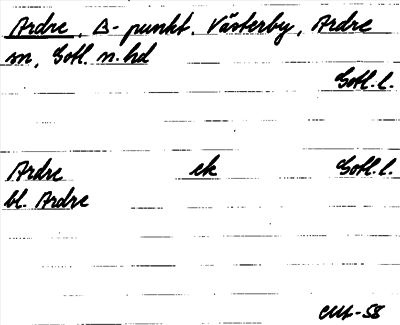 Ardre, Δ-punkt. Västerby, Ardre
sn, Gotl. n. hd
Gotl. l.
Ardre ek Gotl. l.
bl. Ardre
-58